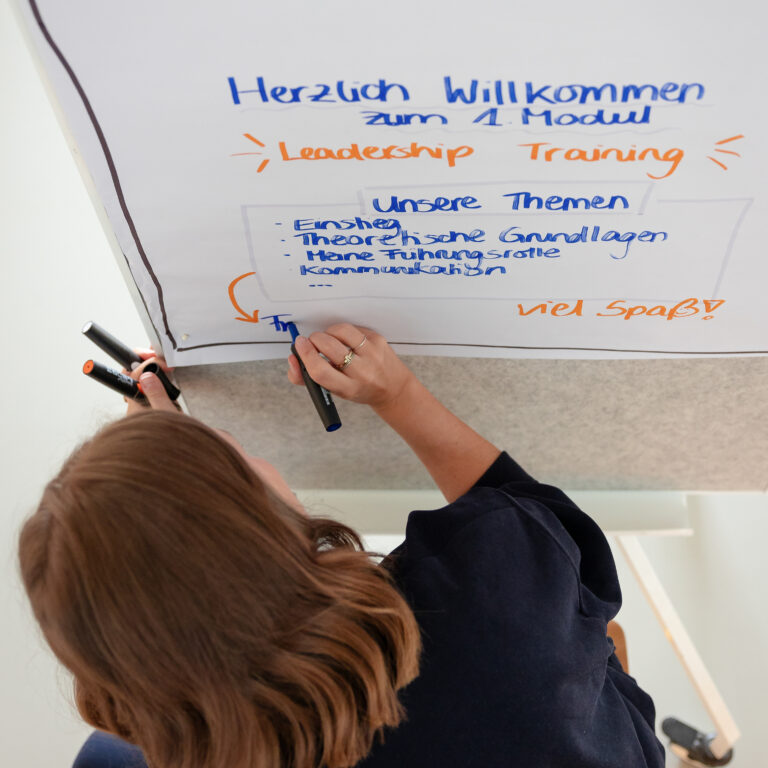 Herzlich Willkommen
zum 1. Modul
Leadership Training
Unsere Themen
- Einstieg
- Theoretische Grundlagen
- Meine Führungsrolle
- Kommunikation
- ...
viel Spaß!